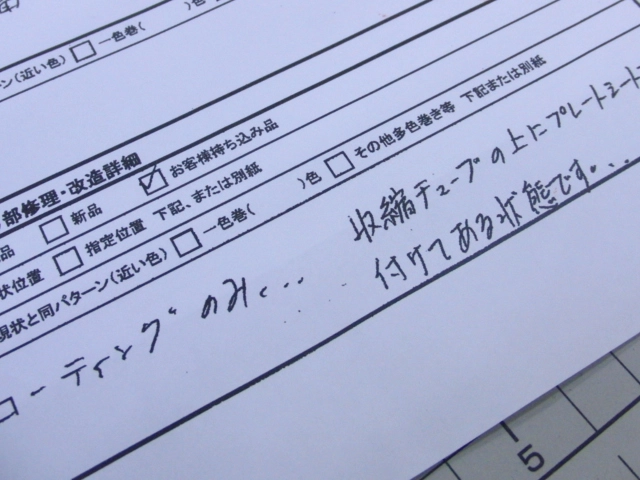 ターン(近い色) □ 一色巻( )色 □
部修理・改造詳細
品 □ 新品 ☑ お客様持ち込み品
状位置 □ 指定位置 下記、または別紙
現状と同パターン(近い色) □ 一色巻( )色 □ その他多色巻き等 下記または別紙
コーティングのみ、… 収縮チューブの上にプレートシート
付けてある状態です。..
5